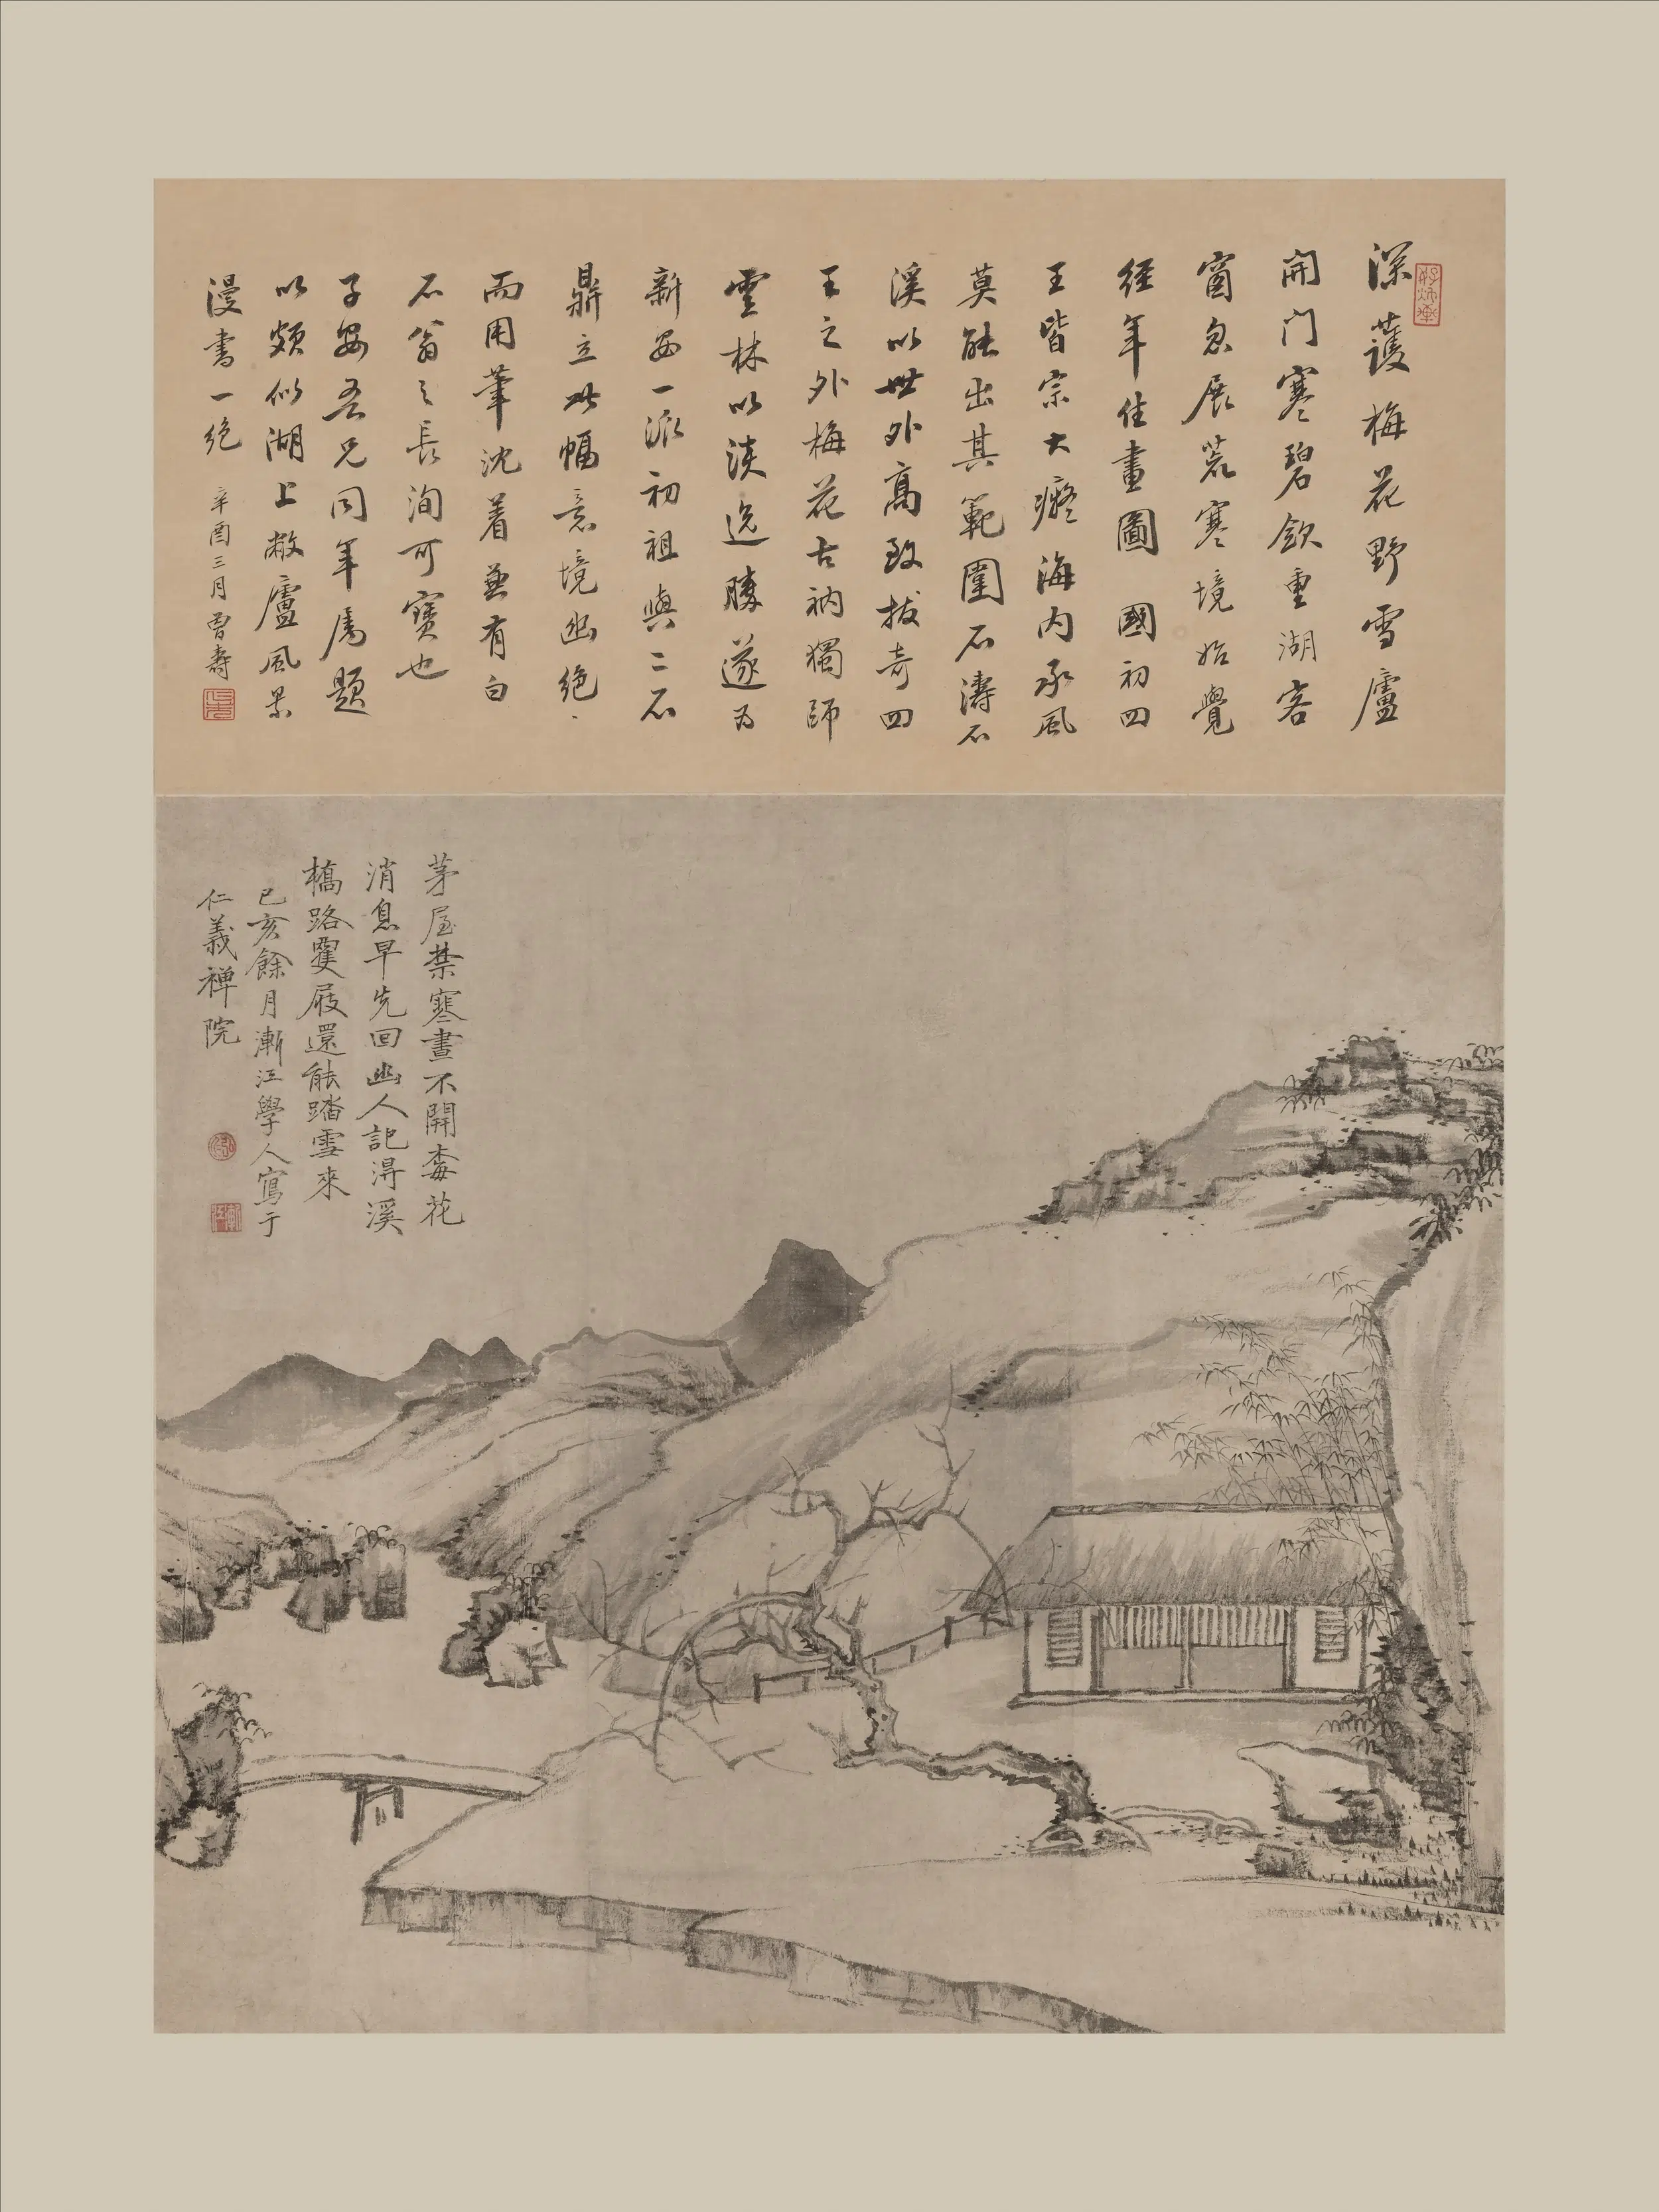 深護梅花野雪廬
開門寒碧欲重湖客
窗忽展荒寒境始覺
經年住畫圖 國初四
王皆宗大癡海內承風
莫能出其範圍石濤石
溪以世外高致拔奇四
王之外梅花古衲獨師
雲林以淡逸勝遂為
新安一派初祖與二石
鼎立此幅意境幽絕
而用筆沈着兼有白
石翁之長洵可寶也
子安吾兄同年屬題
以頗似湖上敝廬風景
漫書一絕 辛酉三月曾壽
茅屋禁寒晝不開梅花
消息早先回幽人記得溪
橋路蠟屐還能踏雪來
己亥餘月漸江學人寫于
仁義禪院
漸江